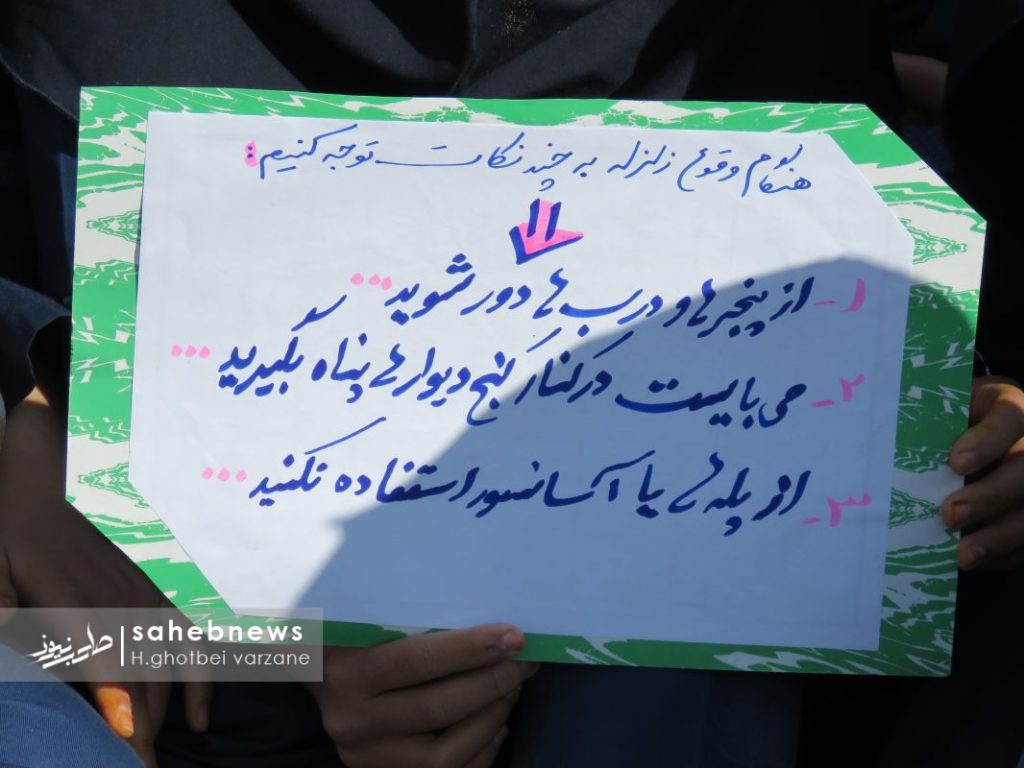 هنگام وقوع زلزله به چند نکات توجه کنیم:
۱- از پنجره‌ها و درب‌ها دور شوید...
۲- می بایست در کنار کنج دیوارها پناه بگیرید...
۳- از پله‌ها یا آسانسور استفاده نکنید...
صاحب نیوز
sahebnews
H.ghotbei varzane